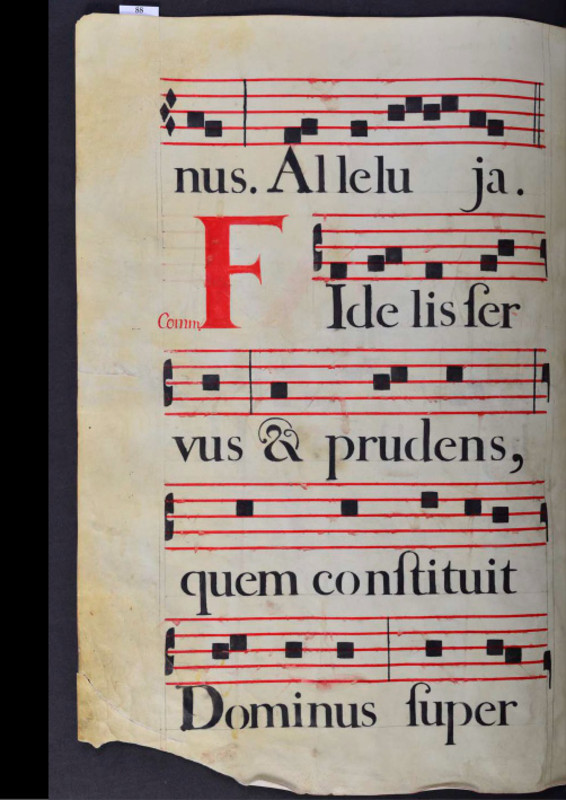 88
nus. Allelu ja.
Comm FIde lis ſer
vus & prudens,
quem conſtituit
Dominus ſuper